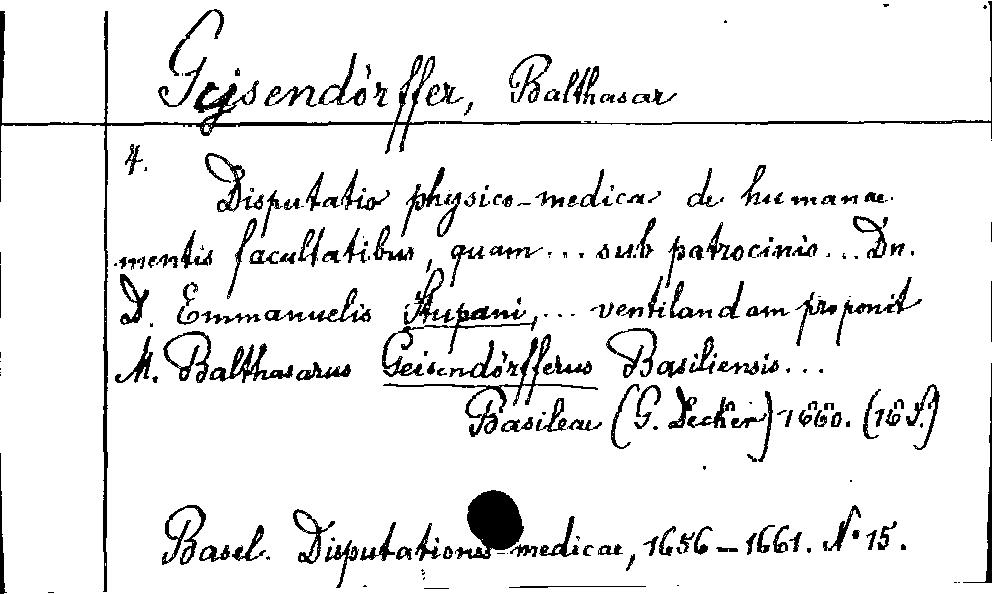 Geisendörffer, Balthasar
4.
Disputatio physico-medica de humanae
mentis facultatibus, quam ... sub patrocinio ... Dn.
D. Emmanuelis Stupani, ... ventilandam proponit
M. Balthasarus Geisendörfferus Basiliensis ...
Basileae (G. Decker) 1660. (16 S.)
Basel. Disputationes medicae, 1656 – 1661. No 15.